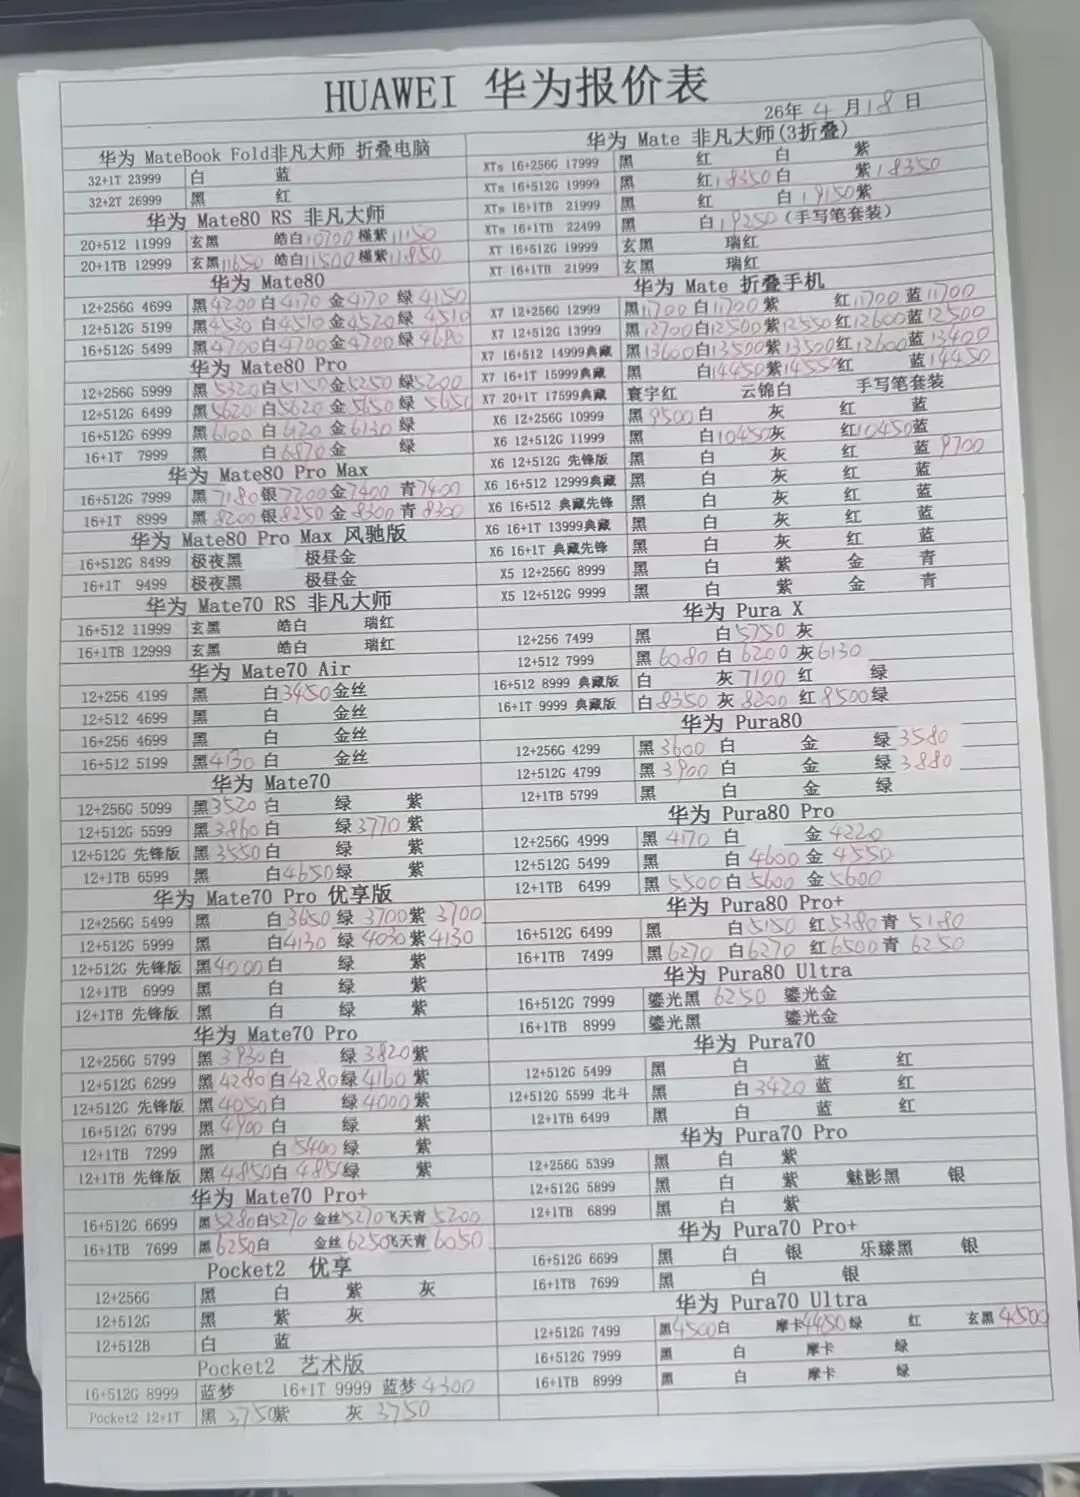 HUAWEI 华为报价表
26年 4 月 18 日
华为 MateBook Fold非凡大师 折叠电脑
32+1T 23999 白 蓝
32+2T 26999 黑 红
华为 Mate80 RS 非凡大师
20+512 11999 玄黑 皓白10700 槿紫11150
20+1TB 12999 玄黑11650 皓白11500槿紫11850
华为 Mate80
12+256G 4699 黑4200 白4170 金4170 绿 4150
12+512G 5199 黑4530 白4510 金4520 绿 4510
16+512G 5499 黑4700 白4700 金4700 绿4690
华为 Mate80 Pro
12+256G 5999 黑 5320白5150 金5250 绿5200
12+512G 6499 黑5620 白5620 金5650 绿 5650
16+512G 6999 黑6100 白6120 金6130 绿
16+1T 7999 黑 白6870 金 绿
华为 Mate80 Pro Max
16+512G 7999 黑 7180银7200金7400 青7400
16+1T 8999 黑 8200银8250金8300青8300
华为 Mate80 Pro Max 风驰版
16+512G 8499 极夜黑 极昼金
16+1T 9499 极夜黑 极昼金
华为 Mate70 RS 非凡大师
16+512 11999 玄黑 皓白 瑞红
16+1TB 12999 玄黑 皓白 瑞红
华为 Mate70 Air
12+256 4199 黑 白3450金丝
12+512 4699 黑 白 金丝
16+256 4699 黑 白 金丝
16+512 5199 黑4130 白 金丝
华为 Mate70
12+256G 5099 黑3520白 绿 紫
12+512G 5599 黑3860白 绿3770紫
12+512G 先锋版 黑3550白 绿 紫
12+1TB 6599 黑 白4650绿 紫
华为 Mate70 Pro 优享版
12+256G 5499 黑 白3650 绿 3700紫 3700
12+512G 5999 黑 白4130 绿 4030紫4130
12+512G 先锋版 黑4000白 绿 紫
12+1TB 6999 黑 白 绿 紫
12+1TB 先锋版 黑 白 绿 紫
华为 Mate70 Pro
12+256G 5799 黑 3930白 绿 3820紫
12+512G 6299 黑4280白4280绿4160紫
12+512G 先锋版 黑4050白 绿4000紫
16+512G 6799 黑4900白 绿 紫
12+1TB 7299 黑 白5400绿 紫
12+1TB 先锋版 黑4850白 4850绿 紫
华为 Mate70 Pro+
16+512G 6699 黑5280白5270 金丝5270飞天青 5200
16+1TB 7699 黑6250白 金丝6250飞天青 6050
Pocket2 优享
12+256G 黑 白 紫 灰
12+512G 黑 紫 灰
12+512B 白 蓝
Pocket2 艺术版
16+512G 8999 蓝梦 16+1T 9999 蓝梦 4300
Pocket2 12+1T 黑 3750紫 灰 3750
华为 Mate 非凡大师(3折叠)
XTs 16+256G 17999 黑 红 白 紫
XTs 16+512G 19999 黑 红18350白 紫18350
XTs 16+1TB 21999 黑 红 白19150紫
XTs 16+1TB 22499 黑 白19250 (手写笔套装)
XT 16+512G 19999 玄黑 瑞红
XT 16+1TB 21999 玄黑 瑞红
华为 Mate 折叠手机
X7 12+256G 12999 黑11700 白11700 紫 红11700 蓝11700
X7 12+512G 13999 黑12700白12500紫12550红12600蓝12500
X7 16+512 14999典藏 黑13600白13500紫13500红12600蓝13400
X7 16+1T 15999典藏 黑 白14450紫14550红 蓝14450
X7 20+1T 17599典藏 寰宇红 云锦白 手写笔套装
X6 12+256G 10999 黑9500白 灰 红 蓝
X6 12+512G 11999 黑 白10450灰 红10450蓝
X6 12+512G 先锋版 黑 白 灰 红 蓝 9700
X6 16+512 12999典藏 黑 白 灰 红 蓝
X6 16+512 典藏先锋 黑 白 灰 红 蓝
X6 16+1T 13999典藏 黑 白 灰 红 蓝
X6 16+1T 典藏先锋 黑 白 灰 红 蓝
X5 12+256G 8999 黑 白 紫 金 青
X5 12+512G 9999 黑 白 紫 金 青
华为 Pura X
12+256 7499 黑 白5750灰
12+512 7999 黑 6080白6200灰6130
16+512 8999 典藏版 白 灰7100 红 绿
16+1T 9999 典藏版 白8350灰 8200 红 8500绿
华为 Pura80
12+256G 4299 黑3600 白 金 绿 3580
12+512G 4799 黑 3900 白 金 绿 3880
12+1TB 5799 黑 白 金 绿
华为 Pura80 Pro
12+256G 4999 黑 4170 白 金 4220
12+512G 5499 黑 白 4600 金 4550
12+1TB 6499 黑 5500白5600 金5600
华为 Pura80 Pro+
16+512G 6499 黑 白5150 红5380青 5180
16+1TB 7499 黑6270 白6270 红6500青 6250
华为 Pura80 Ultra
16+512G 7999 鎏光黑 6250 鎏光金
16+1TB 8999 鎏光黑 鎏光金
华为 Pura70
12+512G 5499 黑 白 蓝 红
12+512G 5599 北斗 黑 白3420蓝 红
12+1TB 6499 黑 白 蓝 红
华为 Pura70 Pro
12+256G 5399 黑 白 紫
12+512G 5899 黑 白 紫 魅影黑 银
12+1TB 6899 黑 白 紫
华为 Pura70 Pro+
16+512G 6699 黑 白 银 乐臻黑 银
16+1TB 7699 黑 白 银
华为 Pura70 Ultra
12+512G 7499 黑4500白 摩卡4450绿 红 玄黑4500
16+512G 7999 黑 白 摩卡 绿
16+1TB 8999 黑 白 摩卡 绿